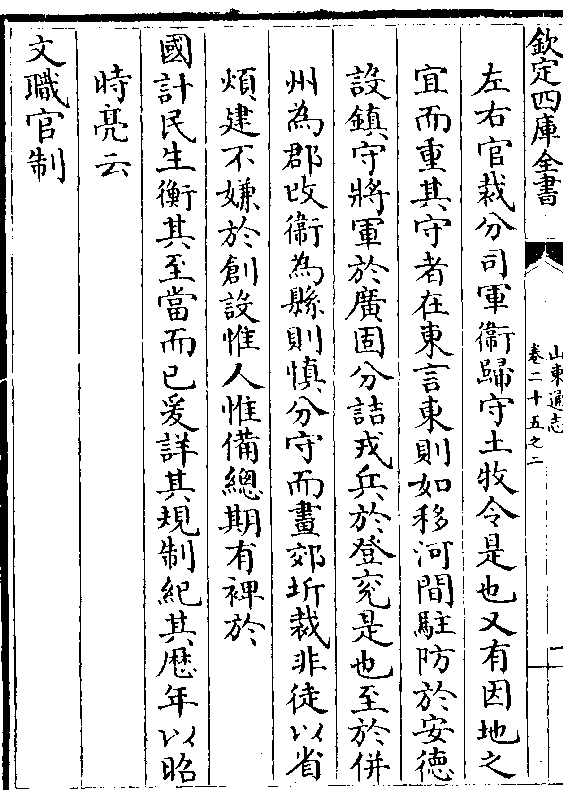 欽定四庫全書
山東通志
卷二十五之二
左右官裁分司軍衛歸守土牧令是也又有因地之
宜而重其守者在東言東則如移河間駐防於安徳
設鎮守將軍於廣固分詰戎兵於登兖是也至於併
州為郡改衛為縣則慎分守而畫郊圻裁非徒以省
煩建不嫌於創設惟人惟備總期有裨於
國計民生衡其至當而已爰詳其規制紀其歴年以昭
時亮云
文職官制